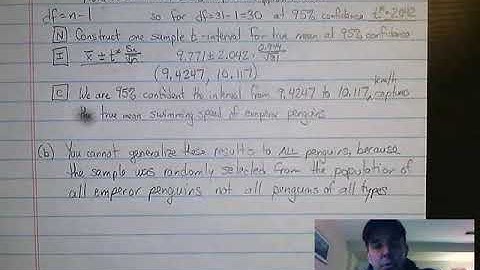 df=n-1 so for df=31-1=30 at 95% confidence t*=2.042
N Construct one sample t-interval for true mean at 95% confidence
I x̄ ± t* Sx/√n 9.771 ± 2.042 · 0.944/√31
(9.4247, 10.117)
C We are 95% confident the interval from 9.4247 to 10.117 km/h captures
the true mean swimming speed of emperor penguins
(b) You cannot generalize these results to ALL penguins, because
the sample was randomly selected from the population of
all emperor penguins not all penguins of all types